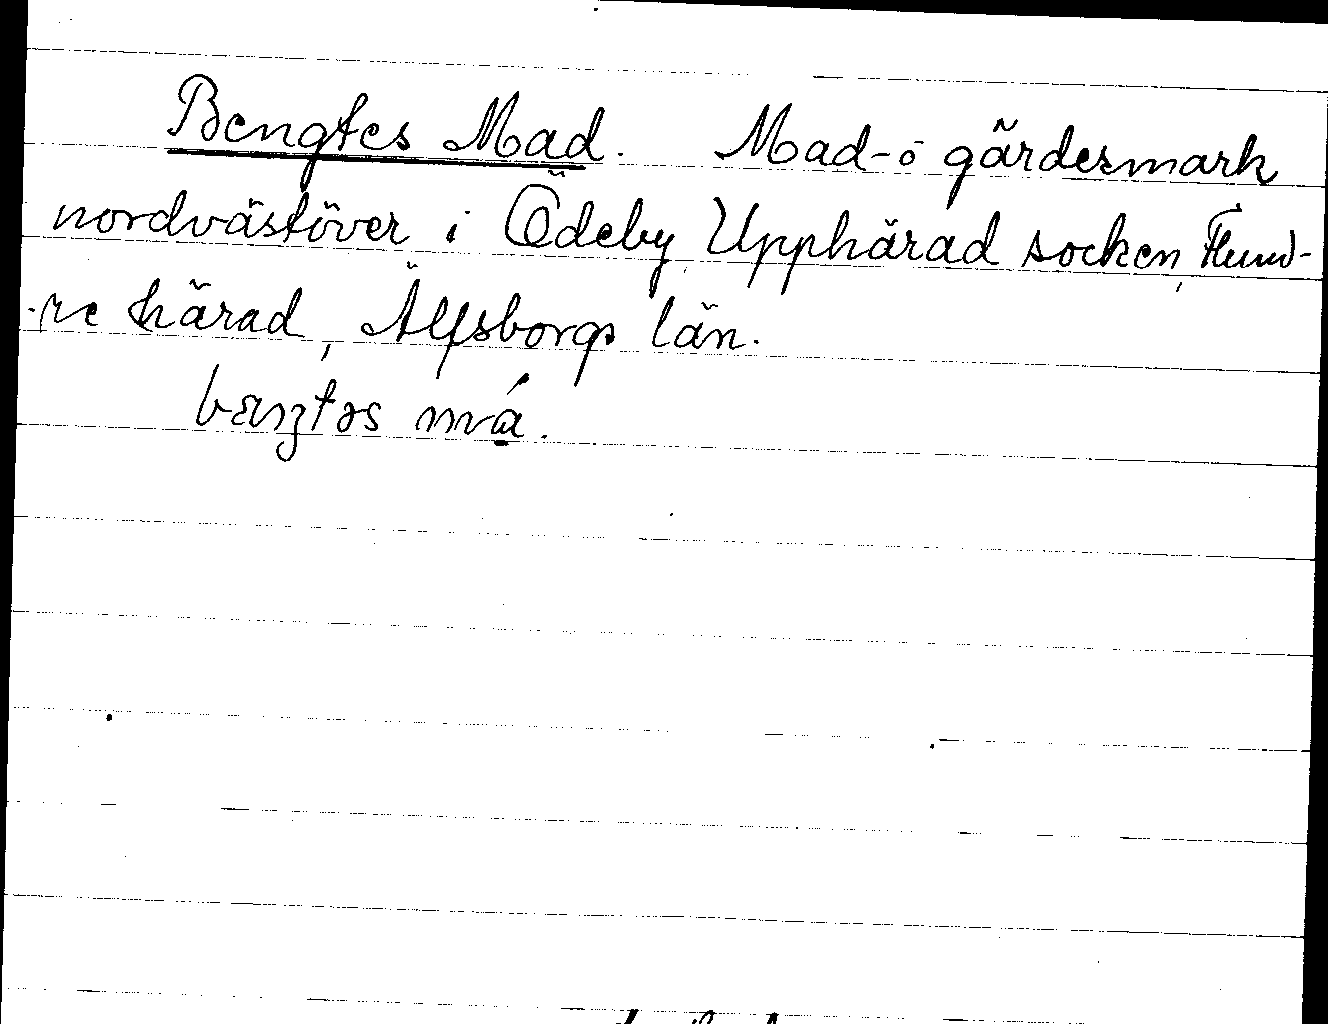 Bengtes Mad. Mad- o gärdesmark
nordvästöver i Ödeby, Upphärad socken, Flund-
re härad, Älfsborgs län.